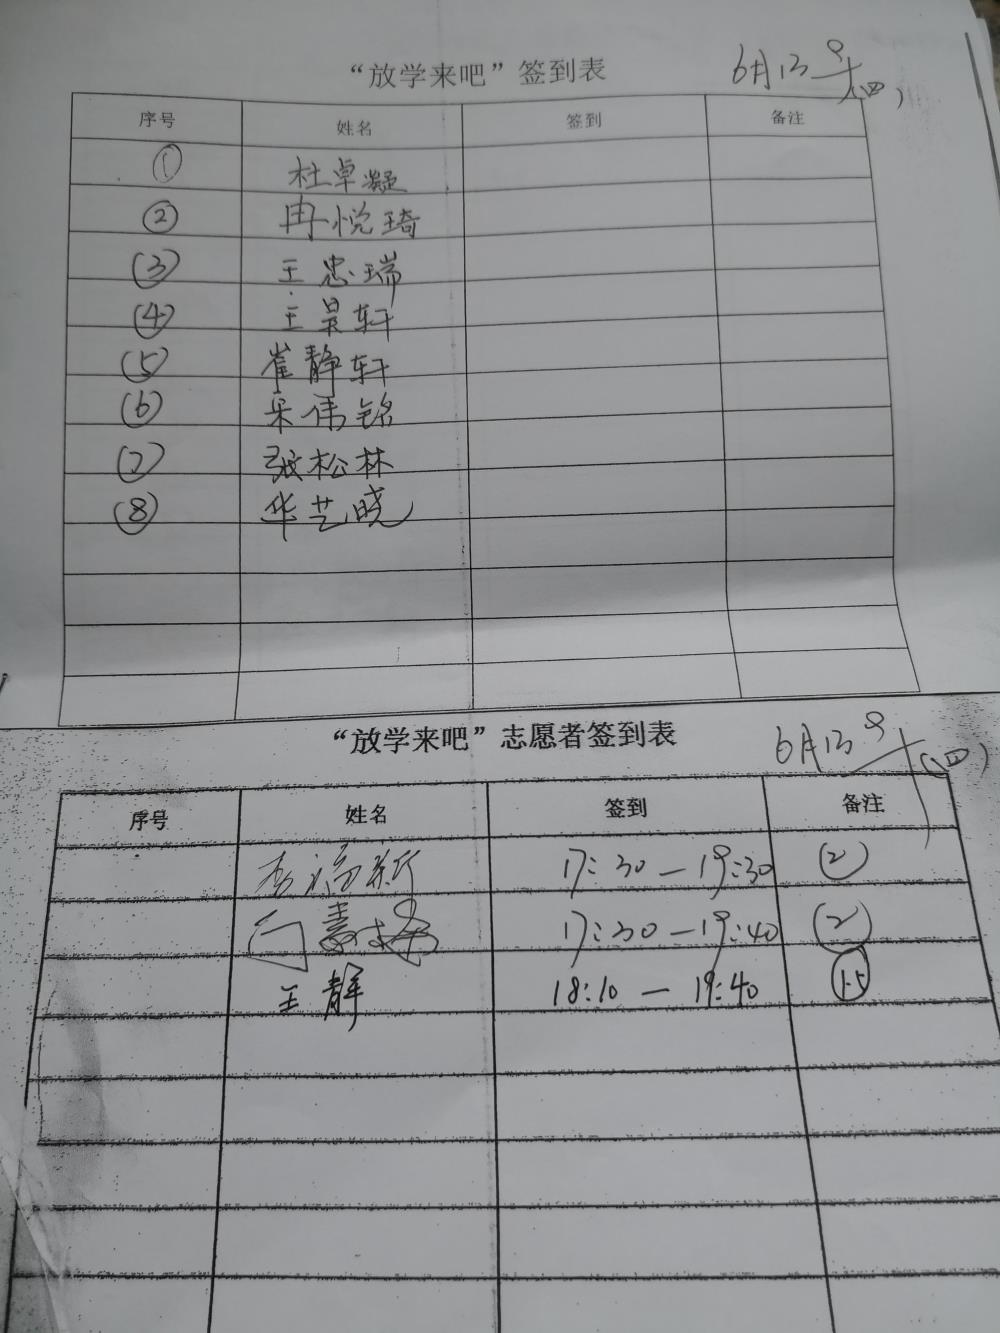 “放学来吧”签到表 6月13号(四)
序号 姓名 签到 备注
① 杜卓凝
② 冉悦琦
③ 王忠瑞
④ 王昊轩
⑤ 崔静轩
⑥ 宋伟铭
⑦ 张松林
⑧ 华艺晓
“放学来吧”志愿者签到表 6月13号(四)
序号 姓名 签到 备注
17:30—19:30 ②
17:30—19:40 ②
王静 18:10—19:40 1.5